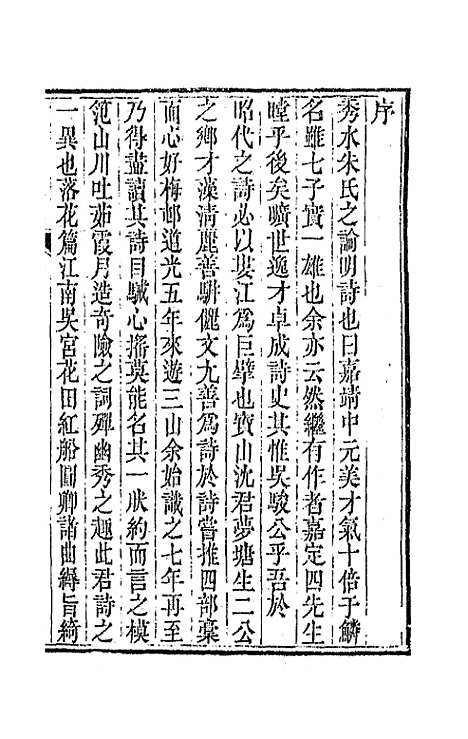 序
秀水朱氏之論明詩也曰嘉靖中元美才氣十倍于鱗
名雖七子實一雄也余亦云然繼有作者嘉定四先生
瞠乎後矣曠世逸才卓成詩史其惟吳駿公乎吾於
昭代之詩必以婁江為巨擘也寶山沈君夢塘生二公
之鄉才藻清麗善駢儷文尤善為詩於詩嘗推四部稾
而心好梅邨道光五年來遊三山余始識之七年再至
乃得盡讀其詩目駴心搖莫能名其一狀約而言之模
范山川吐茹霞月造奇險之詞殫幽秀之趣此君詩之
一異也落花篇江南吳宮花田紅船圓卿諸曲縟旨綺